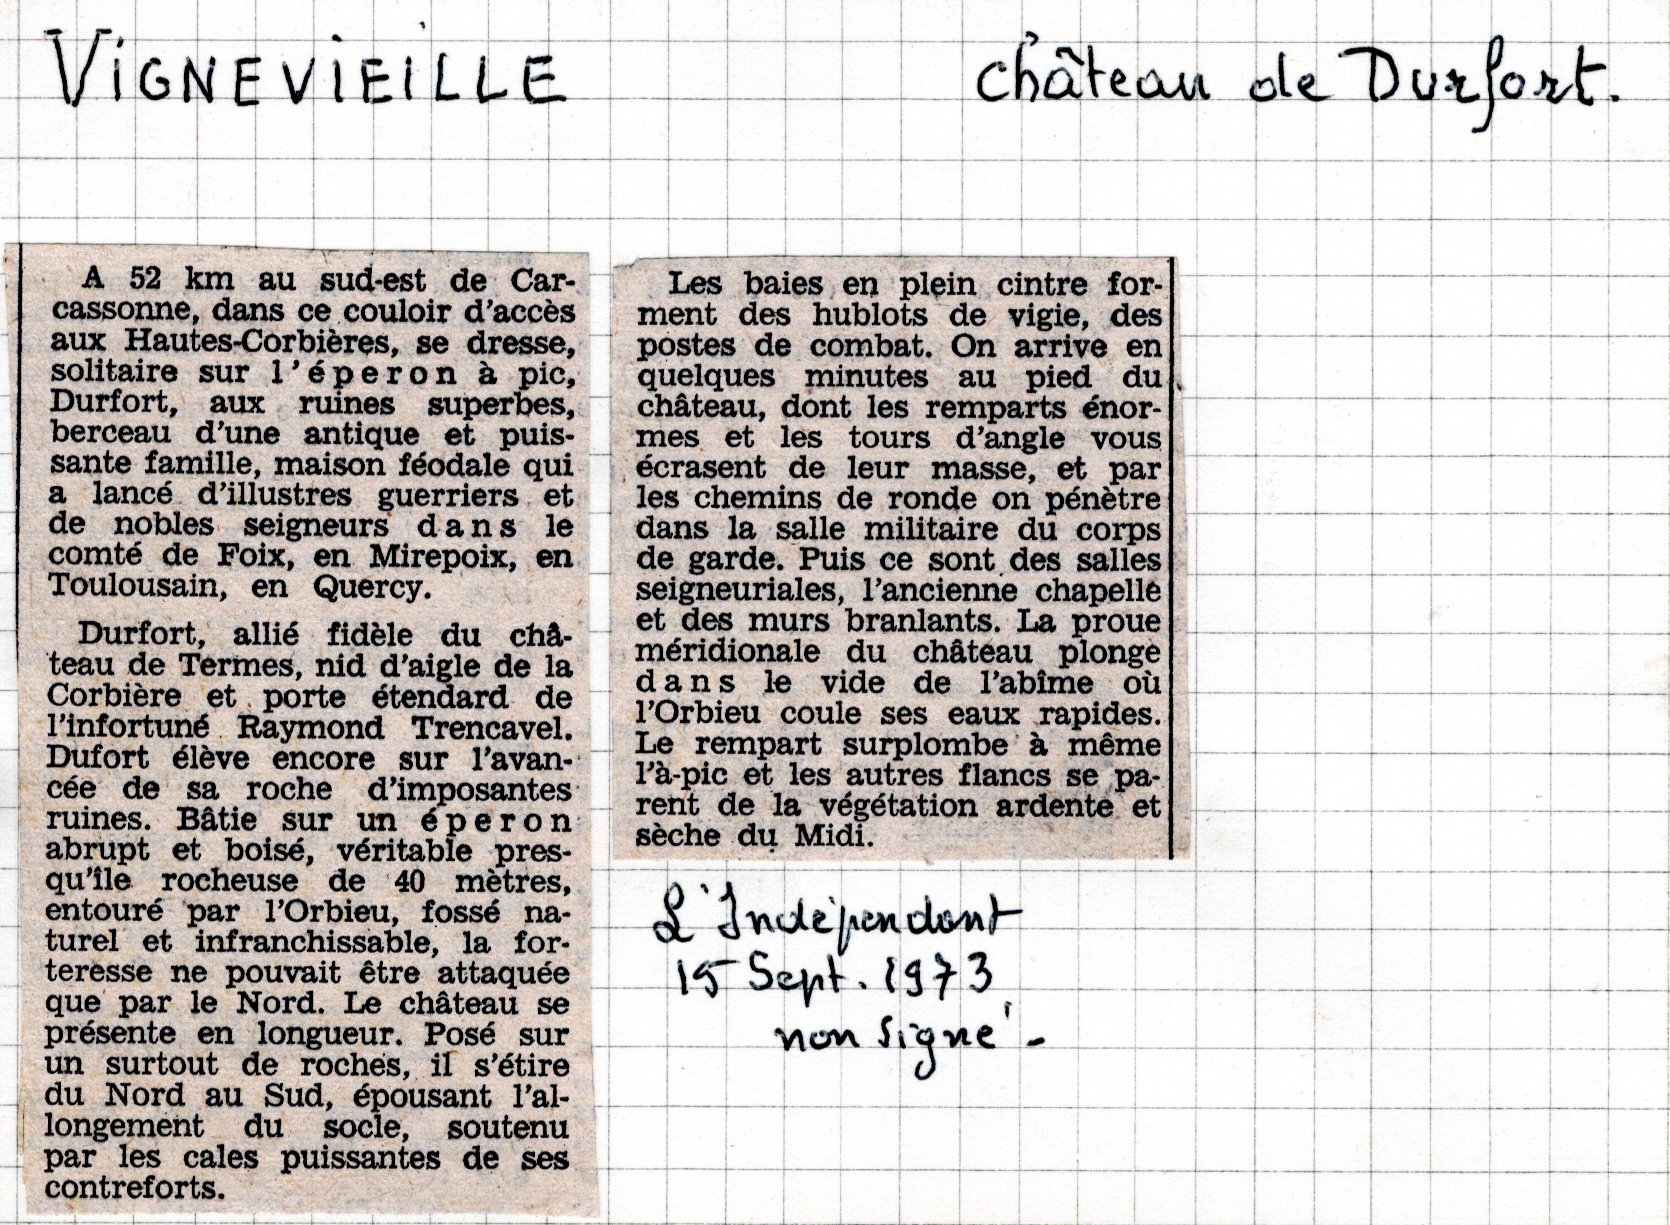 VIGNEVIEILLE
château de Durfort.
A 52 km au sud-est de Car-
cassonne, dans ce couloir d'accès
aux Hautes-Corbières, se dresse,
solitaire sur l'éperon à pic,
Durfort, aux ruines superbes,
berceau d'une antique et puis-
sante famille, maison féodale qui
a lancé d'illustres guerriers et
de nobles seigneurs dans le
comté de Foix, en Mirepoix, en
Toulousain, en Quercy.
Durfort, allié fidèle du châ-
teau de Termes, nid d'aigle de la
Corbière et porte étendard de
l'infortuné Raymond Trencavel.
Dufort élève encore sur l'avan-
cée de sa roche d'imposantes
ruines. Bâtie sur un éperon
abrupt et boisé, véritable pres-
qu'île rocheuse de 40 mètres,
entouré par l'Orbieu, fossé na-
turel et infranchissable, la for-
teresse ne pouvait être attaquée
que par le Nord. Le château se
présente en longueur. Posé sur
un surtout de roches, il s'étire
du Nord au Sud, épousant l'al-
longement du socle, soutenu
par les cales puissantes de ses
contreforts.
Les baies en plein cintre for-
ment des hublots de vigie, des
postes de combat. On arrive en
quelques minutes au pied du
château, dont les remparts énor-
mes et les tours d'angle vous
écrasent de leur masse, et par
les chemins de ronde on pénètre
dans la salle militaire du corps
de garde. Puis ce sont des salles
seigneuriales, l'ancienne chapelle
et des murs branlants. La proue
méridionale du château plonge
dans le vide de l'abîme où
l'Orbieu coule ses eaux rapides.
Le rempart surplombe à même
l'à-pic et les autres flancs se pa-
rent de la végétation ardente et
sèche du Midi.
L'Indépendant
15 Sept. 1973
non signé -